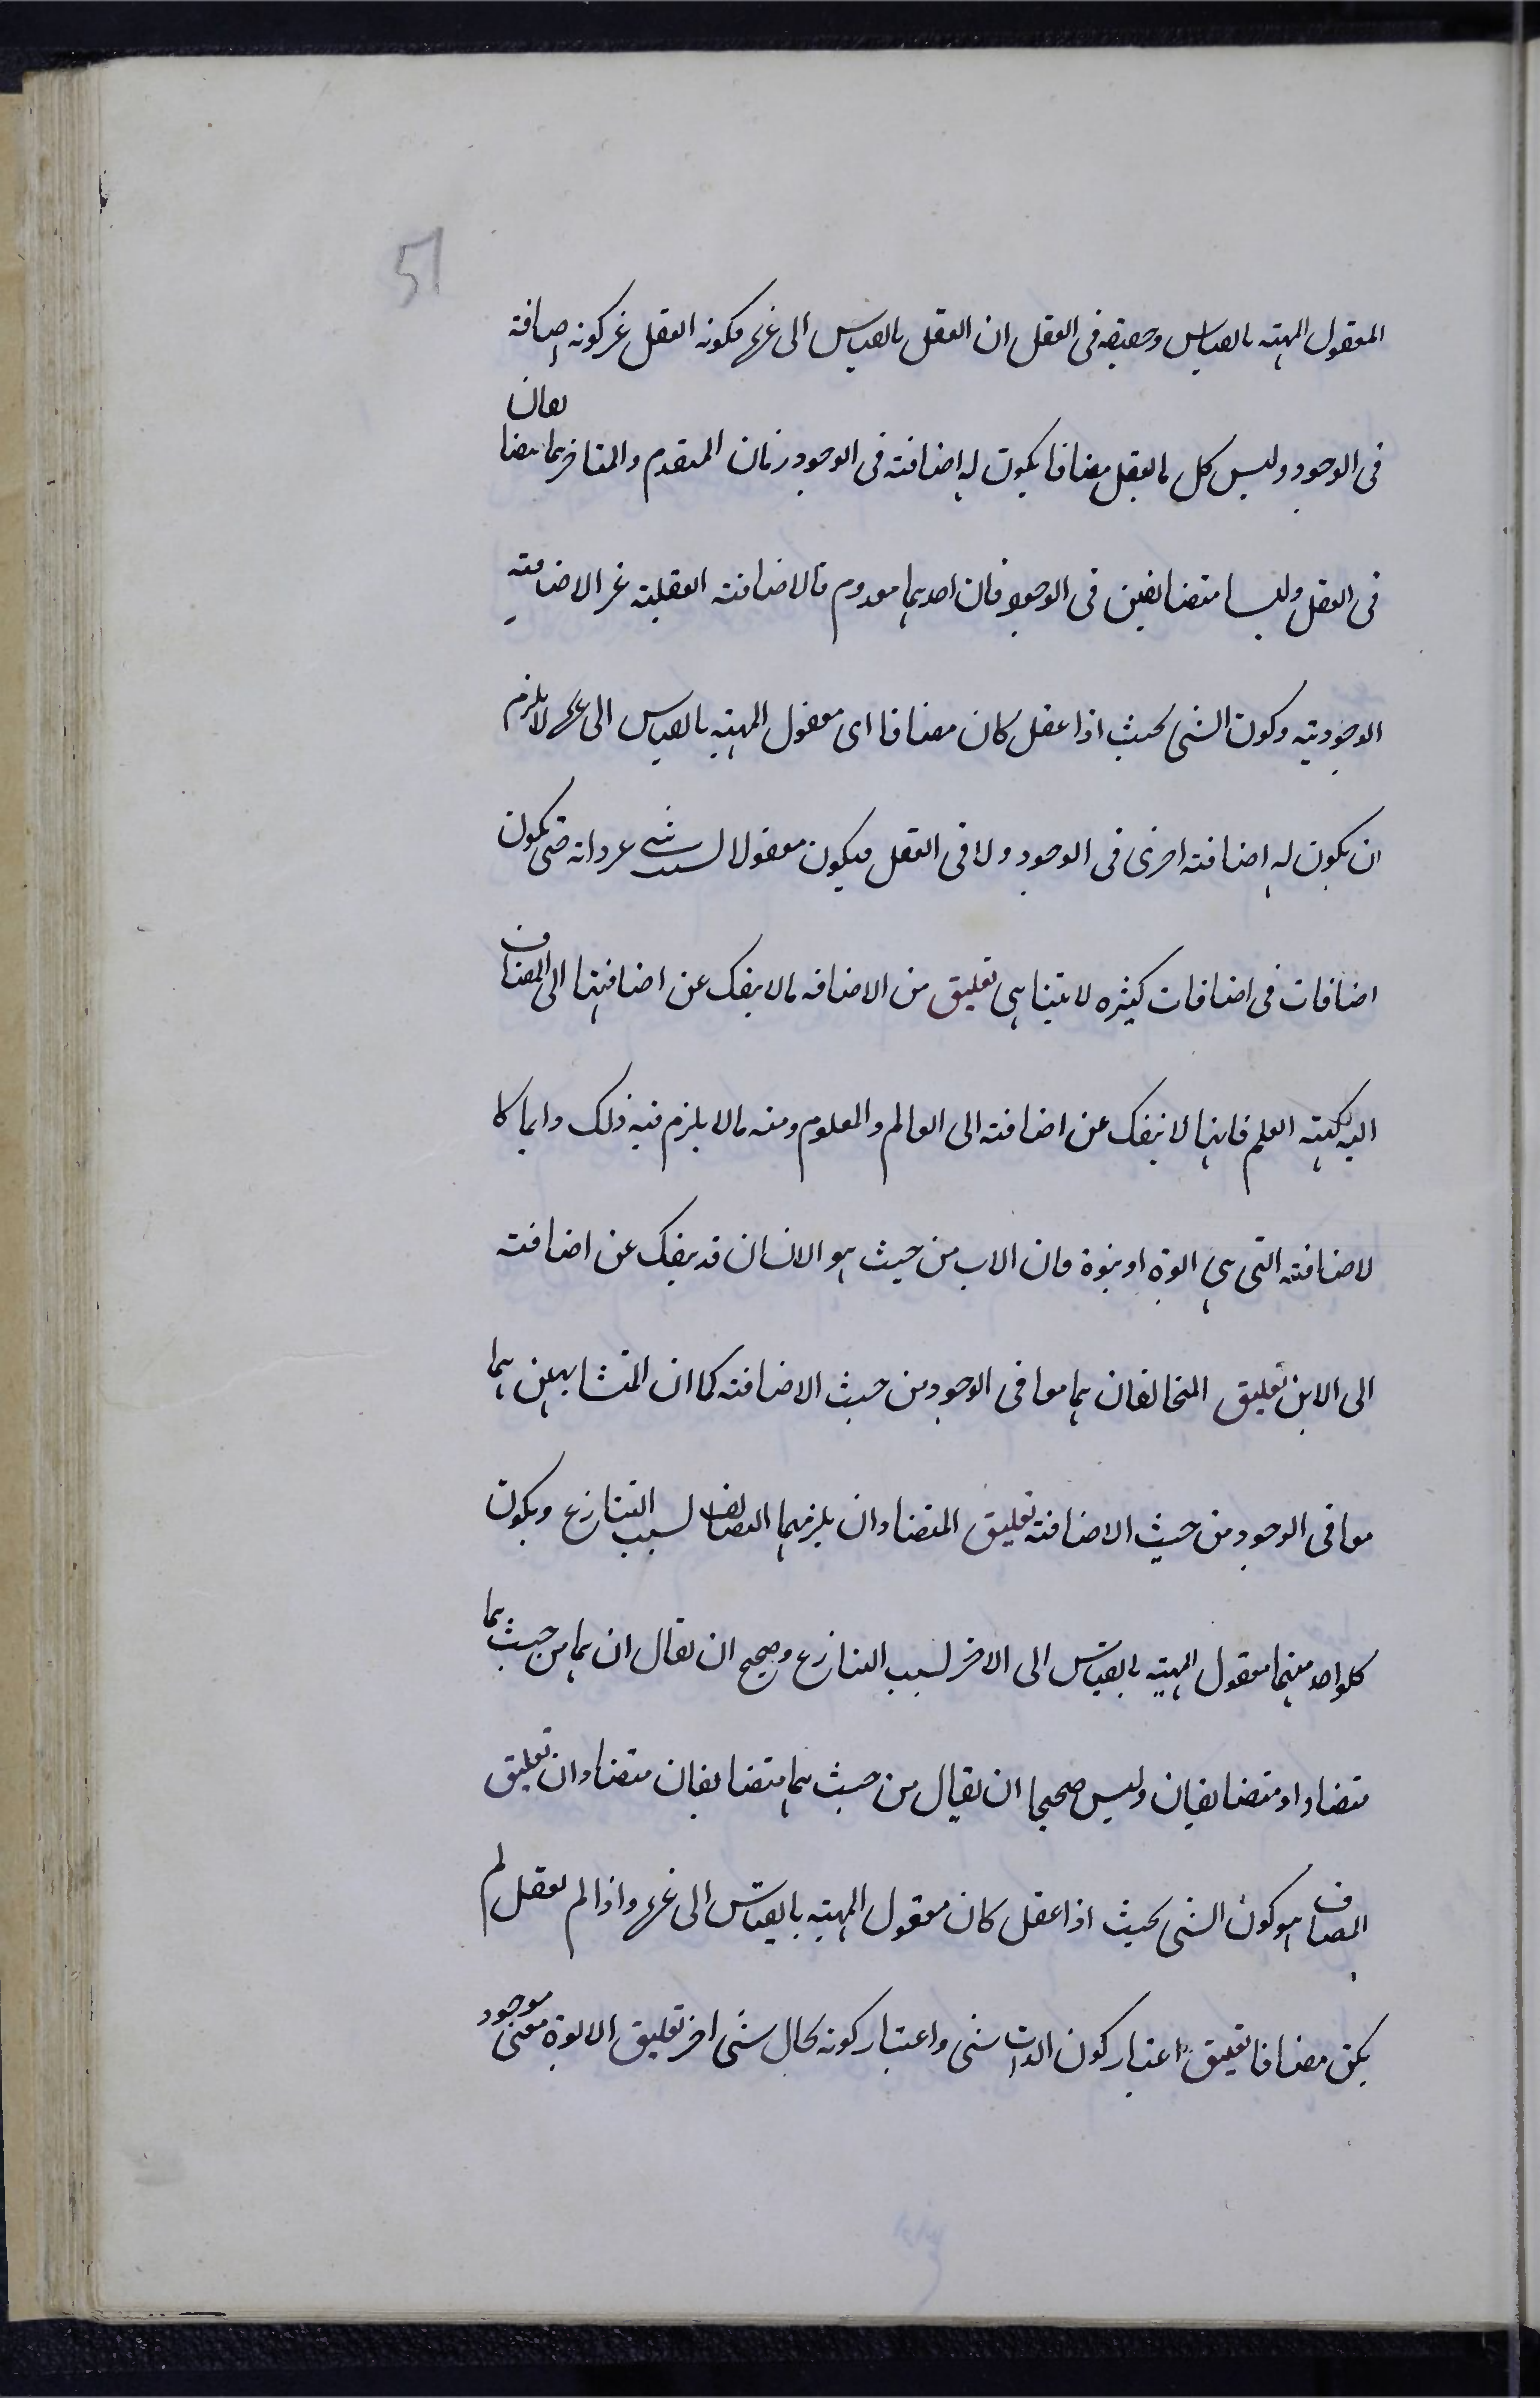 51
المعقول المهیته بالقیاس وحقیقه فی العقل ان العقل بالقیاس الی غیره فکونه العقل غیر کونه اضافته
فی الوجود ولیس کل ما یعقل مضافا یکون له اضافته فی الوجود زمان المتقدم والمتاخر هما متضایفان
فی العقل ولیسا متضایفین فی الوجود فان احدیهما معدوم فالاضافته العقلیته غیر الاضافته
الوجودیته وکون الشیء بحیث اذا عقل کان مضافا ای معقول المهیته بالقیاس الی غیره لا یلزم
ان یکون له اضافته اخری فی الوجود ولا فی العقل فیکون معقولا لسبب شیء غیر ذاته حتی یکون
اضافات فی اضافات کثیره لا یتناهی تعلیق من الاضافه ما لا ینفک عن اضافتها الی المضاف
الیه کهیته العلم فانها لا ینفک عن اضافته الی العالم والمعلوم ومنه ما لا یلزم فیه ذلک وایما کا
لاضافته التی هی ابوة او بنوة فان الاب من حیث هو الانسان قد ینفک عن اضافته
الی الابن تعلیق المتخالفان هما معا فی الوجود من حیث الاضافته کما ان المتشابهین هما
معا فی الوجود من حیث الاضافته تعلیق المتضادان یلزمهما التضایف لسبب التنازع ویکون
کلواحد منهما معقول المهیته بالقیاس الی الاخر لسبب التنازع وصحیح ان یقال ان هما من حیث هما
متضاداد متضایفان ولیس صحیحا ان یقال من حیث هما متضایفان متضادان تعلیق
المضاف هو کون الشیء بحیث اذا عقل کان معقول المهیته بالقیاس الی غیره واذا لم یعقل لم
یکن مضافا تعلیق اعتبار کون الذات شیء واعتبار کونه بحال شیء اخر تعلیق الابوة معنی موجود